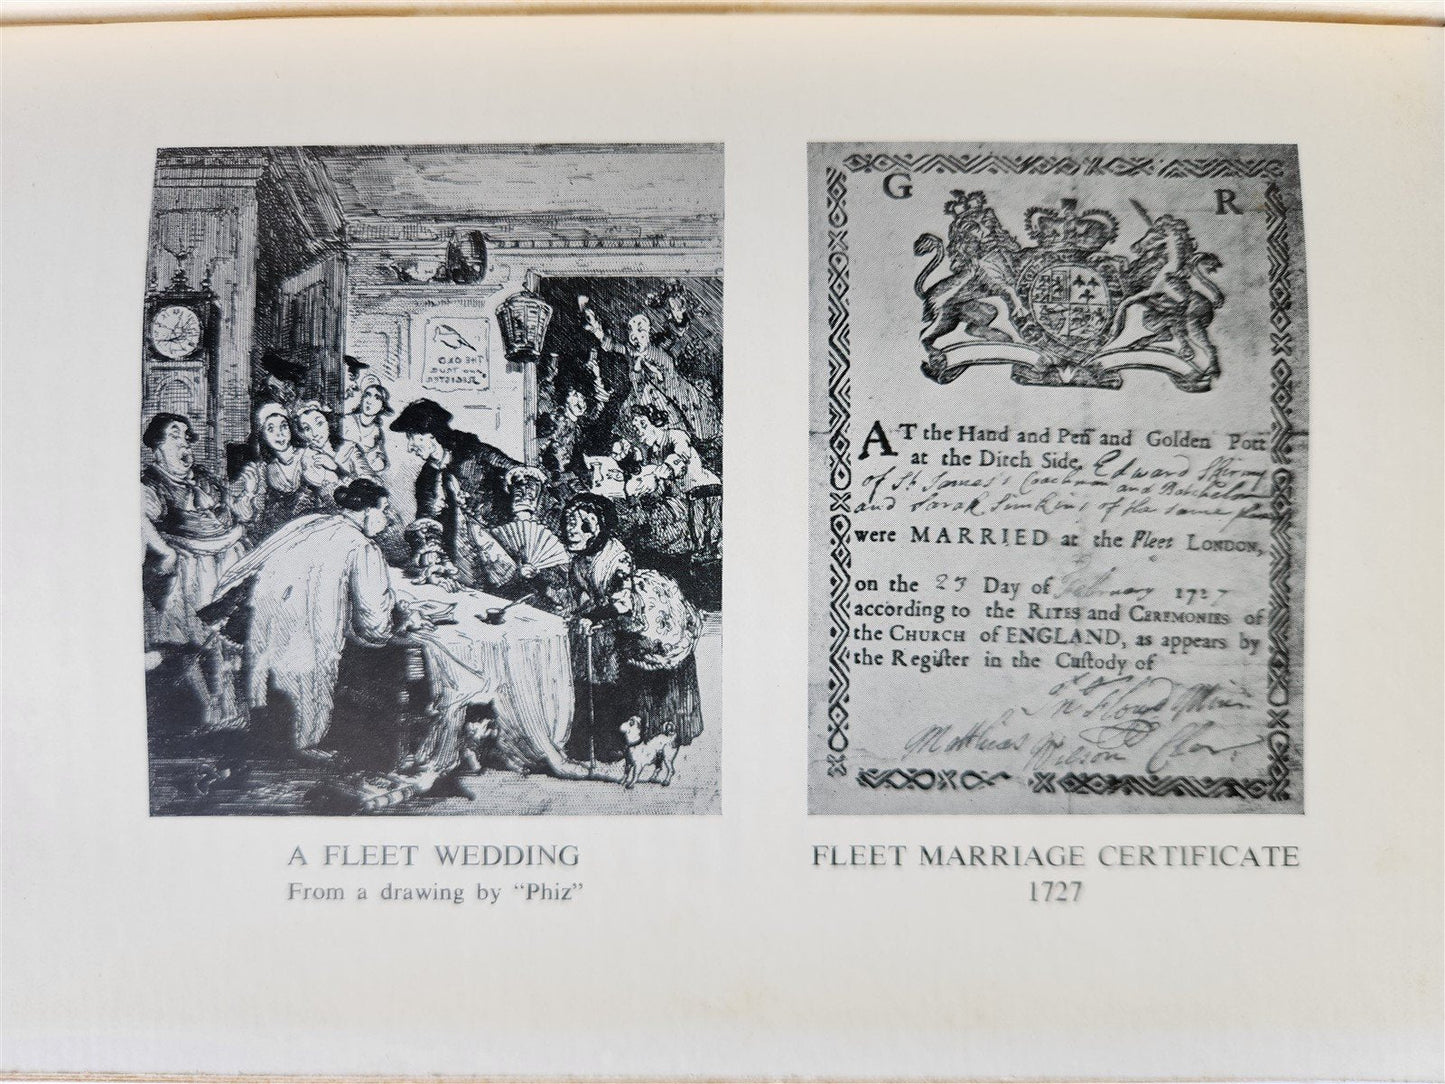 THE OLD
AND TRUE
REGISTER
A FLEET WEDDING
From a drawing by “Phiz”
G R
AT the Hand and Pen and Golden Pott
at the Ditch Side, Edward
of St James's Coachman and Batchelor
and Sarah Simkins of the same place
were MARRIED at the Fleet LONDON,
on the 23 Day of February 1727
according to the RITES and CEREMONIES of
the CHURCH of ENGLAND, as appears by
the Regiſter in the Cuſtody of
Floud
Matthias Wilson
FLEET MARRIAGE CERTIFICATE
1727